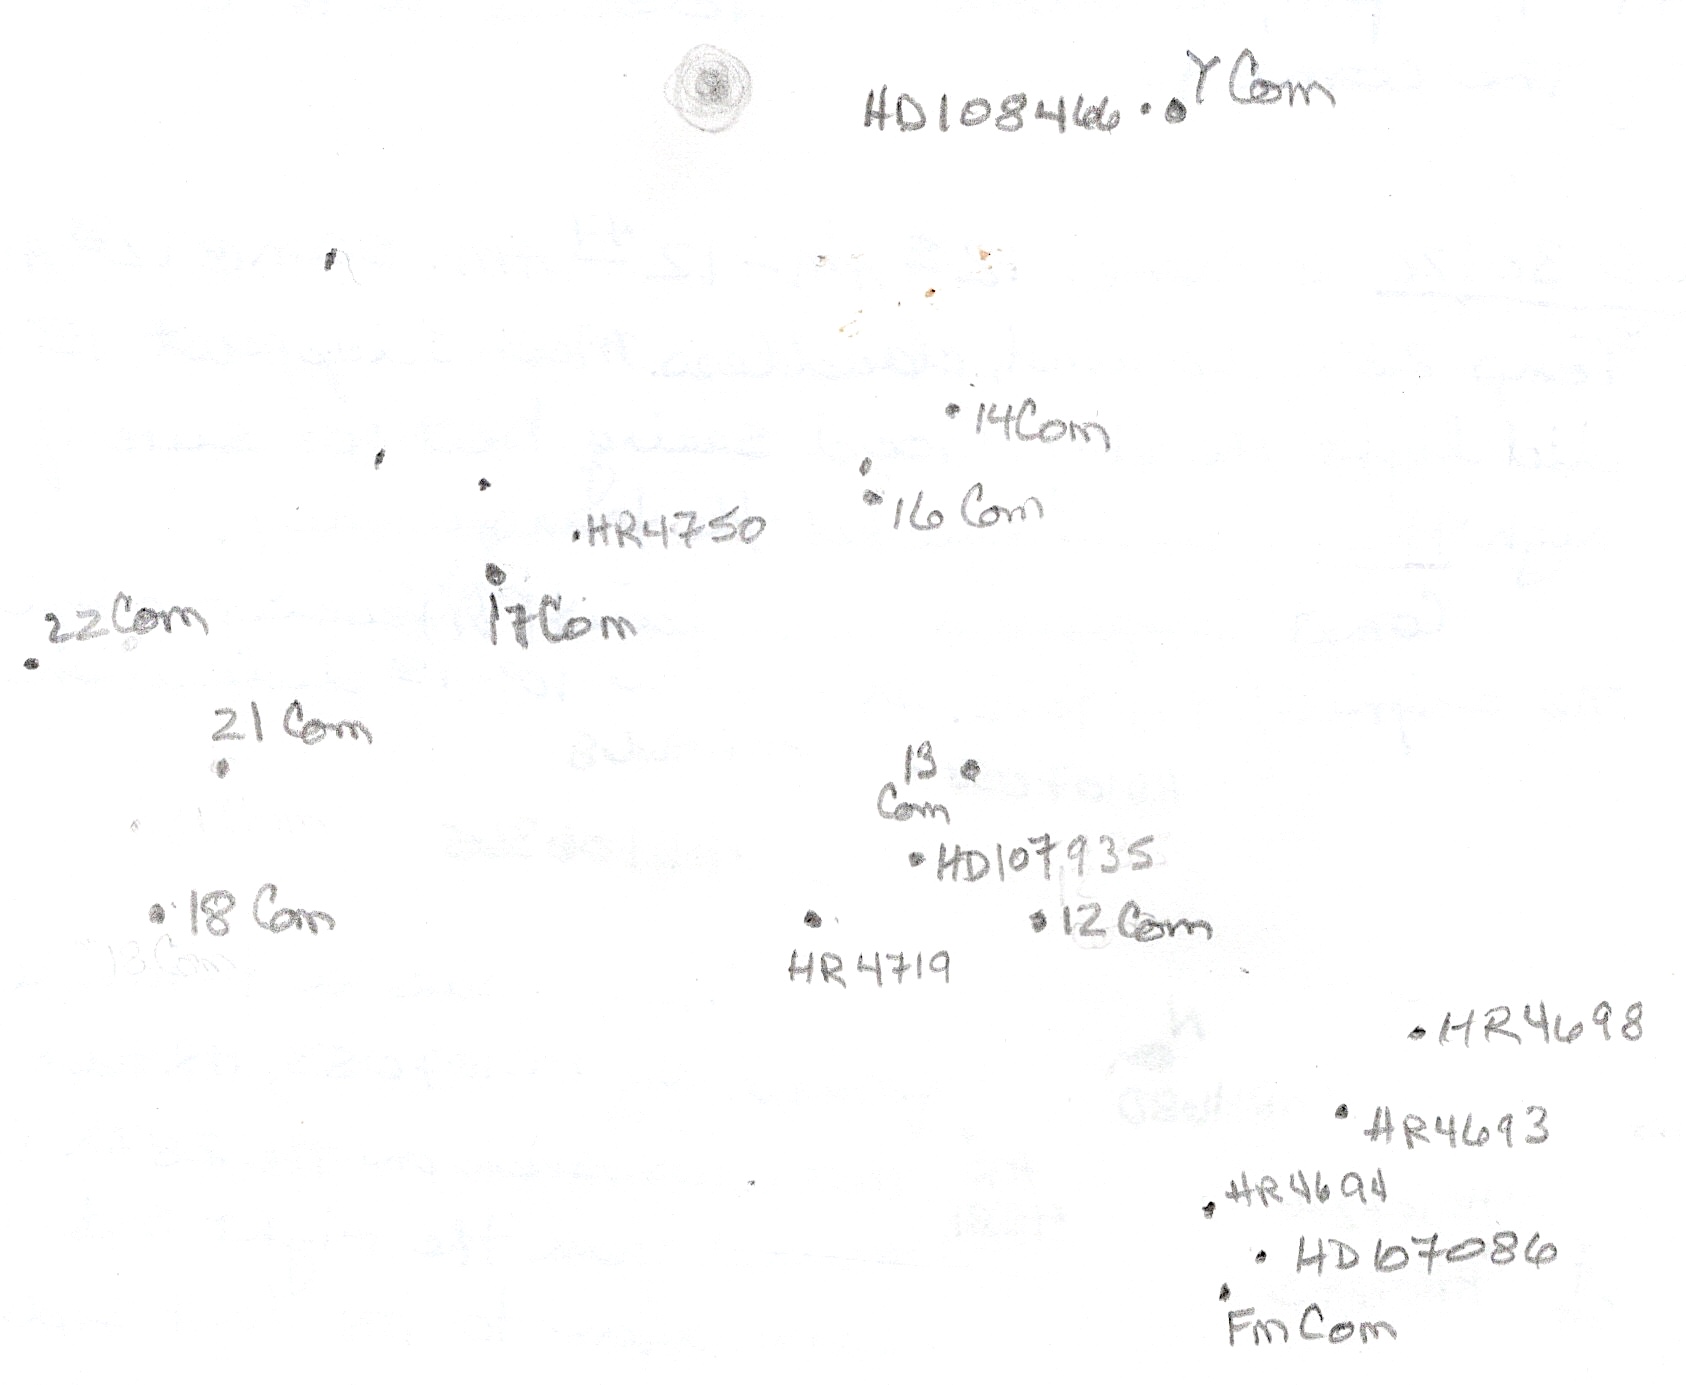 γ Com
HD108466
14 Com
16 Com
HR4750
17 Com
22 Com
21 Com
13
Com
HD107935
18 Com
12 Com
HR4719
HR4698
HR4693
HR4694
HD107086
Fm Com